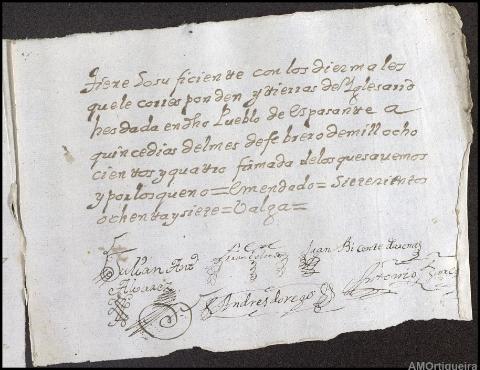 tiene losu ficiente con los diezmales
quele corres ponden y tierras del Yglesario
hes dada en dho Pueblo de Espasante a
quince dias del mes de fe brero de mill ocho
cientos y quatro fa mada de los quesavemos
y por los que no = Emendado = Sietezientos
ochenta y siete = Valga =
Juan Bicente
Andres dorego
Antonio
AMOrtigueira